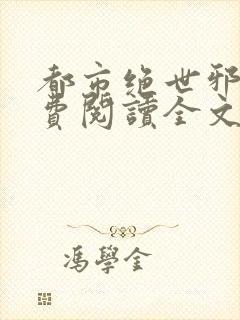 都市绝世邪
費閱讀全文
馮學金